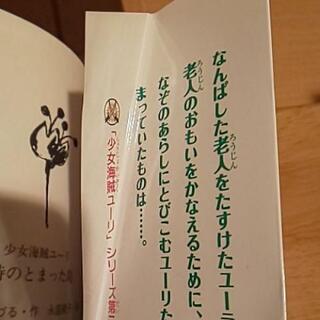 なんぱした老人をたすけたユー
老人のおもいをかなえるために、
なぞのあらしにとびこむユーリた
まっていたものは……。
「少女海賊ユーリ」シリーズ第
少女海賊ユーリ
時のとまった島
づる・作